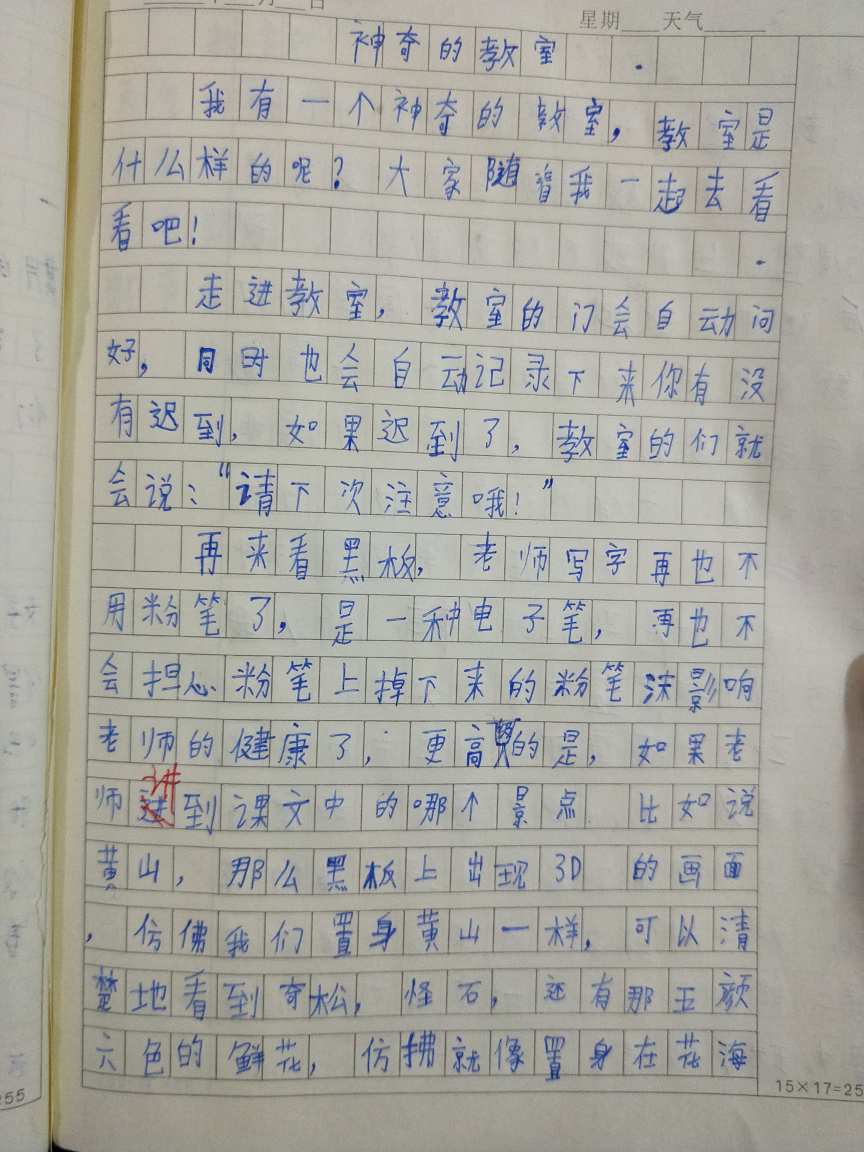 星期 天气
神奇的教室
我有一个神奇的教室，教室是
什么样的呢？大家随着我一起去看
看吧！
走进教室，教室的门会自动问
好，同时也会自动记录下来你有没
有迟到，如果迟到了，教室的们就
会说：“请下次注意哦！”
再来看黑板，老师写字再也不
用粉笔了，是一种电子笔，再也不
会担心粉笔上掉下来的粉笔沫影响
老师的健康了，更高贤的是，如果老
师讲到课文中的哪个景点 比如说
黄山，那么黑板上出现3D的画面
，仿佛我们置身黄山一样，可以清
楚地看到奇松，怪石，还有那五颜
六色的鲜花，仿拂就像置身在花海
15×17=25
255